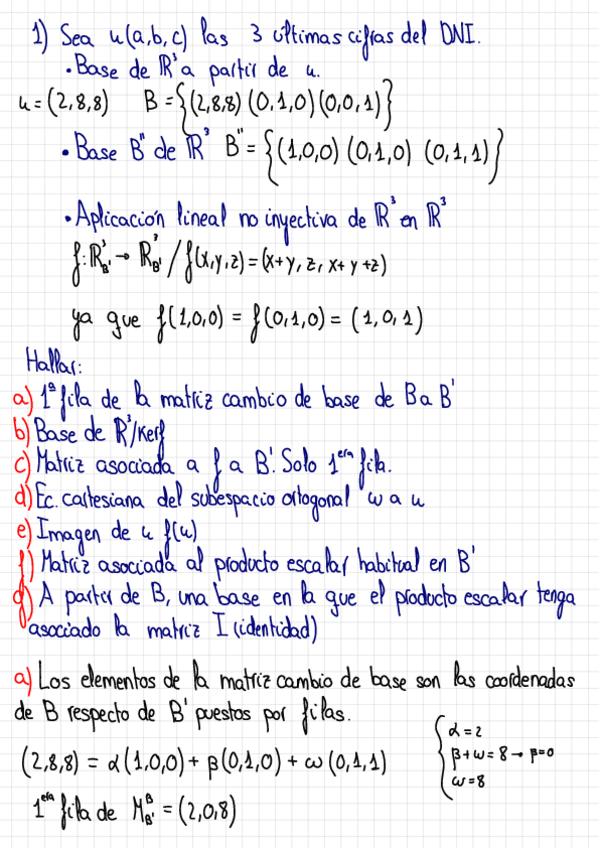 1) Sea u(a,b,c) las 3 últimas cifras del DNI.
• Base de ℝ³ a partir de u.
u = (2,8,8) B = {(2,8,8) (0,1,0) (0,0,1)}
• Base B'' de ℝ³ B'' = {(1,0,0) (0,1,0) (0,1,1)}
• Aplicación lineal no inyectiva de ℝ³ en ℝ³
f: ℝ³B' → ℝ³B' / f(x,y,z) = (x+y, z, x+y+z)
ya que f(1,0,0) = f(0,1,0) = (1,0,1)
Hallar:
a) 1ª fila de la matriz cambio de base de B a B'
b) Base de ℝ³/Kerf
c) Matriz asociada a f a B'. Solo 1era fila.
d) Ec. cartesiana del subespacio ortogonal w a u
e) Imagen de u f(u)
f) Matriz asociada al producto escalar habitual en B'
g) A partir de B, una base en la que el producto escalar tenga
asociado la matriz I (identidad)
a) Los elementos de la matriz cambio de base son las coordenadas
de B respecto de B' puestos por filas.
(2,8,8) = α(1,0,0) + β(0,1,0) + ω(0,1,1)
{α = 2
β + ω = 8 → β=0
ω = 8
1era fila de M^B_B' = (2,0,8)